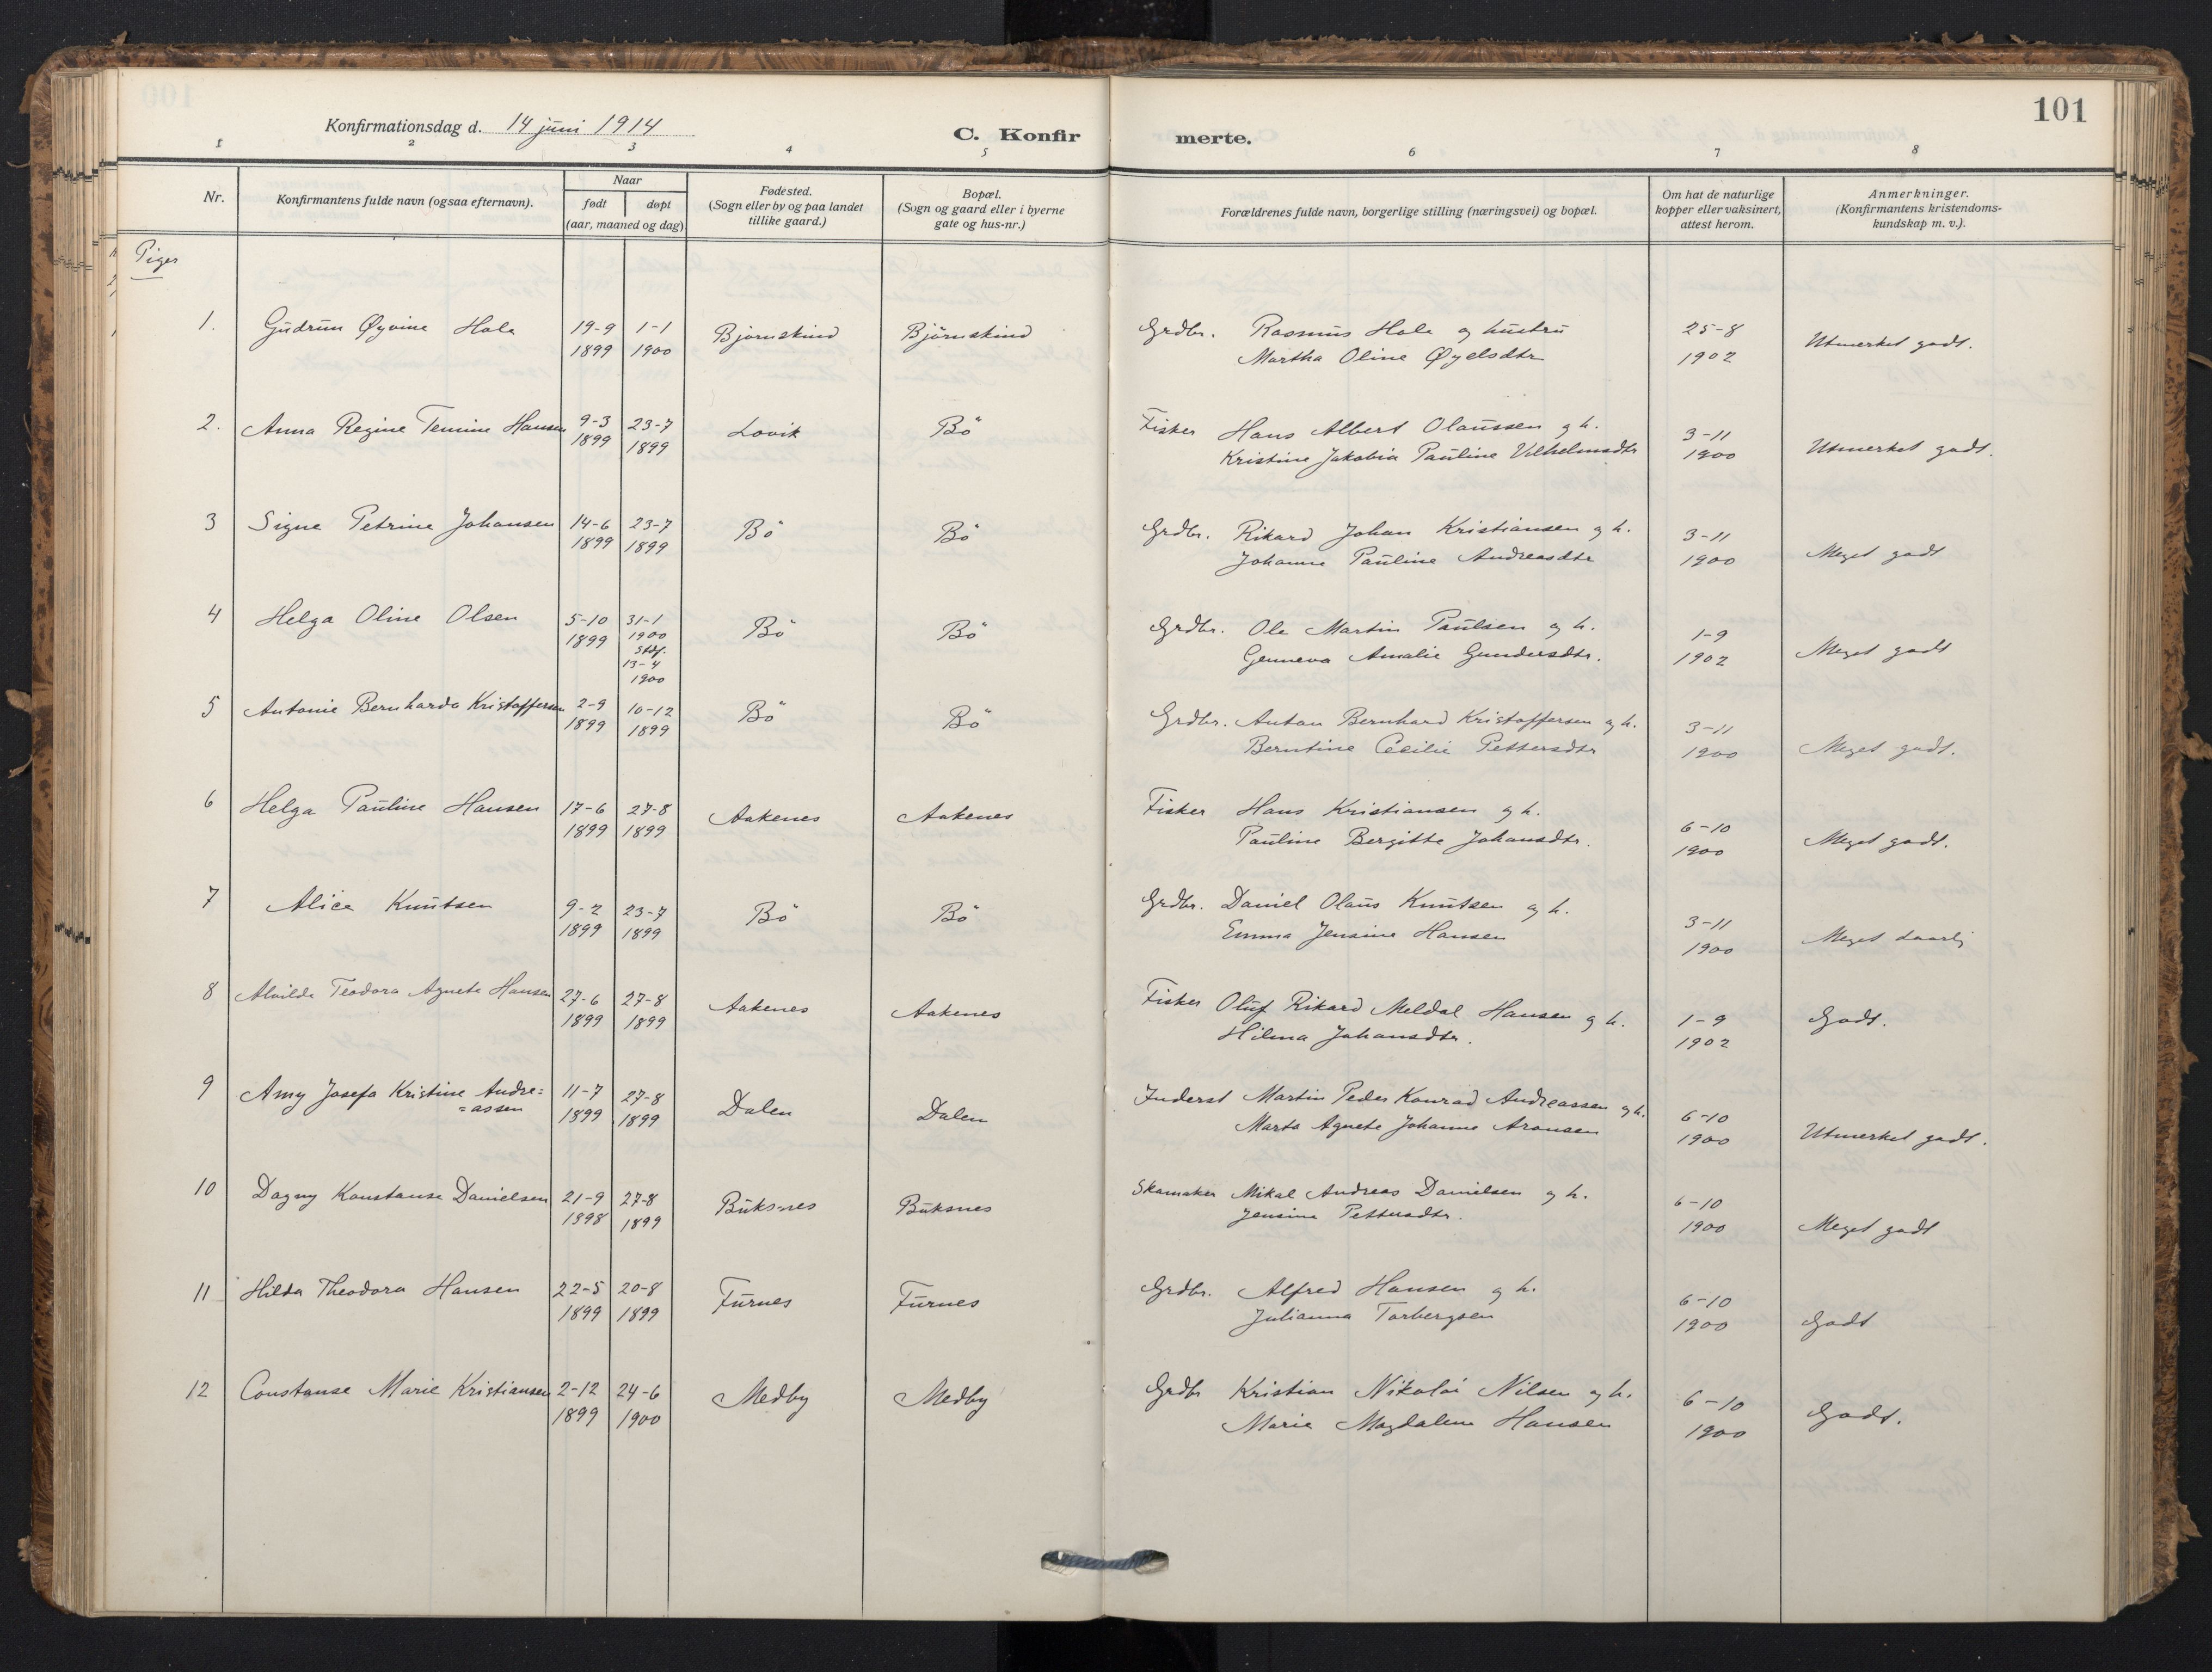 101
Konfirmationsdag d. 14 juni 1914
C. Konfir
merte.
1 2 3 4 5 6 7 8
Nr.
Konfirmantens fulde navn (ogsaa efternavn).
Naar
født
døpt
(aar, maaned og dag)
Fødested.
(Sogn eller by og paa landet
tillike gaard.)
Bopæl.
(Sogn og gaard eller i byerne
gate og hus-nr.)
Forældrenes fulde navn, borgerlige stilling (næringsvei) og bopæl.
Om hat de naturlige
kopper eller vaksinert,
attest herom.
Anmerkninger.
(Konfirmantens kristendoms-
kundskap m. v.).
Piger
1. Gudrun Øyvine Hole 19-9 1-1 Bjørnskind Björnskind Grdbr. Rasmus Hole og hustru 25-8 Utmerket godt.
1899 1900 Martha Oline Øyelsdtr 1902
2. Anna Regine Temine Hansen 9-3 23-7 Lovik Bö Fisker Hans Albert Olaussen og h. 3-11 Utmerket godt.
1899 1899 Kristine Jakobia Pauline Vilhelmsdtr 1900
3 Signe Petrine Johansen 14-6 23-7 Bö Bö Grdbr. Rikard Johan Kristiansen og h. 3-11 Meget godt
1899 1899 Johanne Pauline Andreasdtr 1900
4 Helga Oline Olsen 5-10 31-1 Bö Bö Grdbr. Ole Martin Paulsen og h. 1-9 Meget godt
1899 1900 Genneva Amalie Gundersdtr. 1902
Stdf.
13-4
1900
5 Antonie Bernharda Kristoffersen 2-9 10-12 Bö Bö Grdbr. Anton Bernhard Kristoffersen og h. 3-11 Meget godt.
1899 1899 Berntine Cecilie Pettersdtr 1900
6 Helga Pauline Hansen 17-6 27-8 Aakenes Aakenes Fisker Hans Kristiansen og h. 6-10 Meget godt.
1899 1899 Pauline Bergitte Johansdtr. 1900
7 Alice Knutsen 9-2 23-7 Bö Bö Grdbr. Daniel Olaus Knutsen og h. 3-11 Meget daarlig
1899 1899 Emma Jensine Hansen 1900
8 Alvilde Teodora Agnete Hansen 27-6 27-8 Aakenes Aakenes Fisker Oluf Rikard Meldal Hansen og h. 1-9 Godt.
1899 1899 Hilma Johansdtr. 1902
9 Amy Josefa Kristine Andre= 11-7 27-8 Dalen Dalen Inderst Martin Peder Konrad Andreassen og h. 6-10 Utmerket godt.
=assen 1899 1899 Marta Agnete Johanne Aronsen 1900
10 Dagny Konstanse Danielsen 21-9 27-8 Buksnes Buksnes Skomaker Mikal Andreas Danielsen og h. 6-10 Meget godt
1898 1899 Jensine Pettersdtr. 1900
11 Hilda Theodora Hansen 22-5 20-8 Furnes Furnes Grdbr. Alfred Hansen og h. 6-10 Godt
1899 1899 Julianna Torbergsen 1900
12 Constanse Marie Kristiansen 2-12 24-6 Medby Medby Grdbr Kristian Nikolai Nilsen og h. 6-10 Godt.
1899 1900 Marie Magdalene Hansen 1900